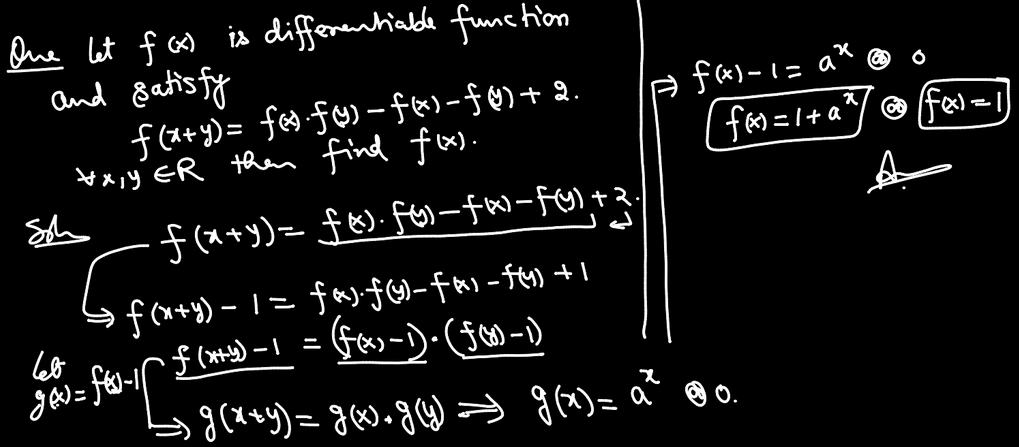 Que let f(x) is differentiable function
and satisfy
f(x+y) = f(x).f(y) - f(x) - f(y) + 2.
∀ x, y ∈ R then find f(x).
Soln
f(x+y) = f(x).f(y) - f(x) - f(y) + 2.
⇒ f(x+y) - 1 = f(x).f(y) - f(x) - f(y) + 1
f(x+y) - 1 = (f(x) - 1).(f(y) - 1)
let
g(x) = f(x) - 1
⇒ g(x+y) = g(x).g(y) ⇒ g(x) = a^x or 0.
⇒ f(x) - 1 = a^x or 0
f(x) = 1 + a^x or f(x) = 1
A.